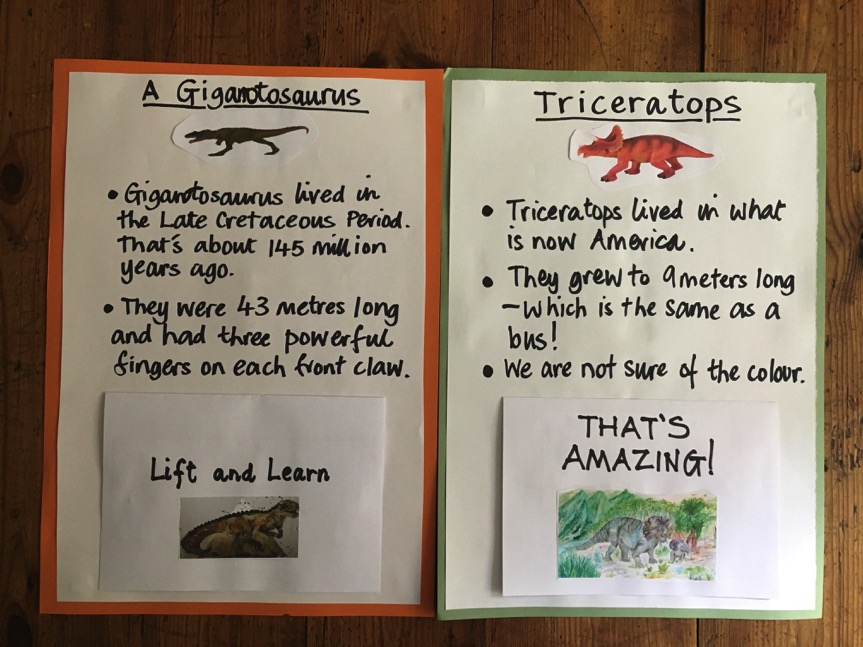 A Giganotosaurus
• Giganotosaurus lived in
the Late Cretaceous Period.
That's about 145 million
years ago.
• They were 43 metres long
and had three powerful
fingers on each front claw.
Lift and Learn
Triceratops
• Triceratops lived in what
is now America.
• They grew to 9meters long
–which is the same as a
bus!
• We are not sure of the colour.
THAT'S
AMAZING!